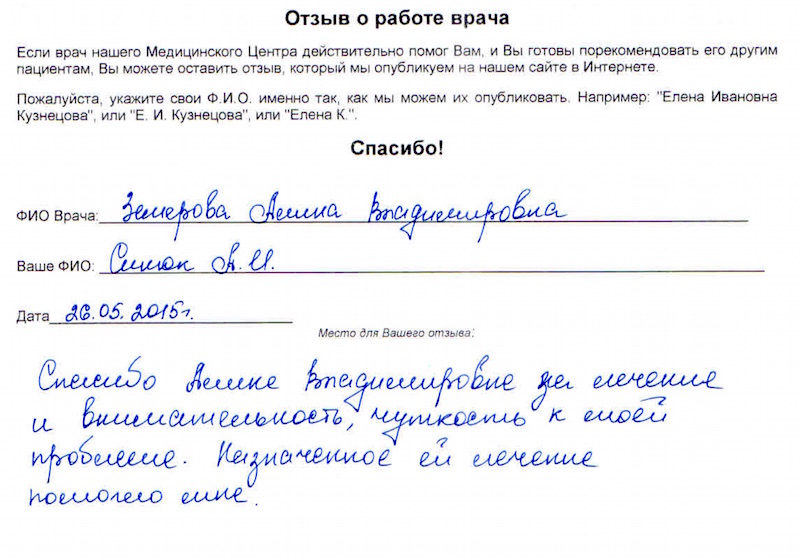 Отзыв о работе врача
Если врач нашего Медицинского Центра действительно помог Вам, и Вы готовы порекомендовать его другим
пациентам, Вы можете оставить отзыв, который мы опубликуем на нашем сайте в Интернете.
Пожалуйста, укажите свои Ф.И.О. именно так, как мы можем их опубликовать. Например: "Елена Ивановна
Кузнецова", или "Е. И. Кузнецова", или "Елена К.".
Спасибо!
ФИО Врача: Земерова Алина Владимировна
Ваше ФИО: Симок А.И.
Дата 26.05.2015г.
Место для Вашего отзыва:
Спасибо Алине Владимировне за лечение
и внимательность, чуткость к моей
проблеме. Назначенное ей лечение
помогло мне.